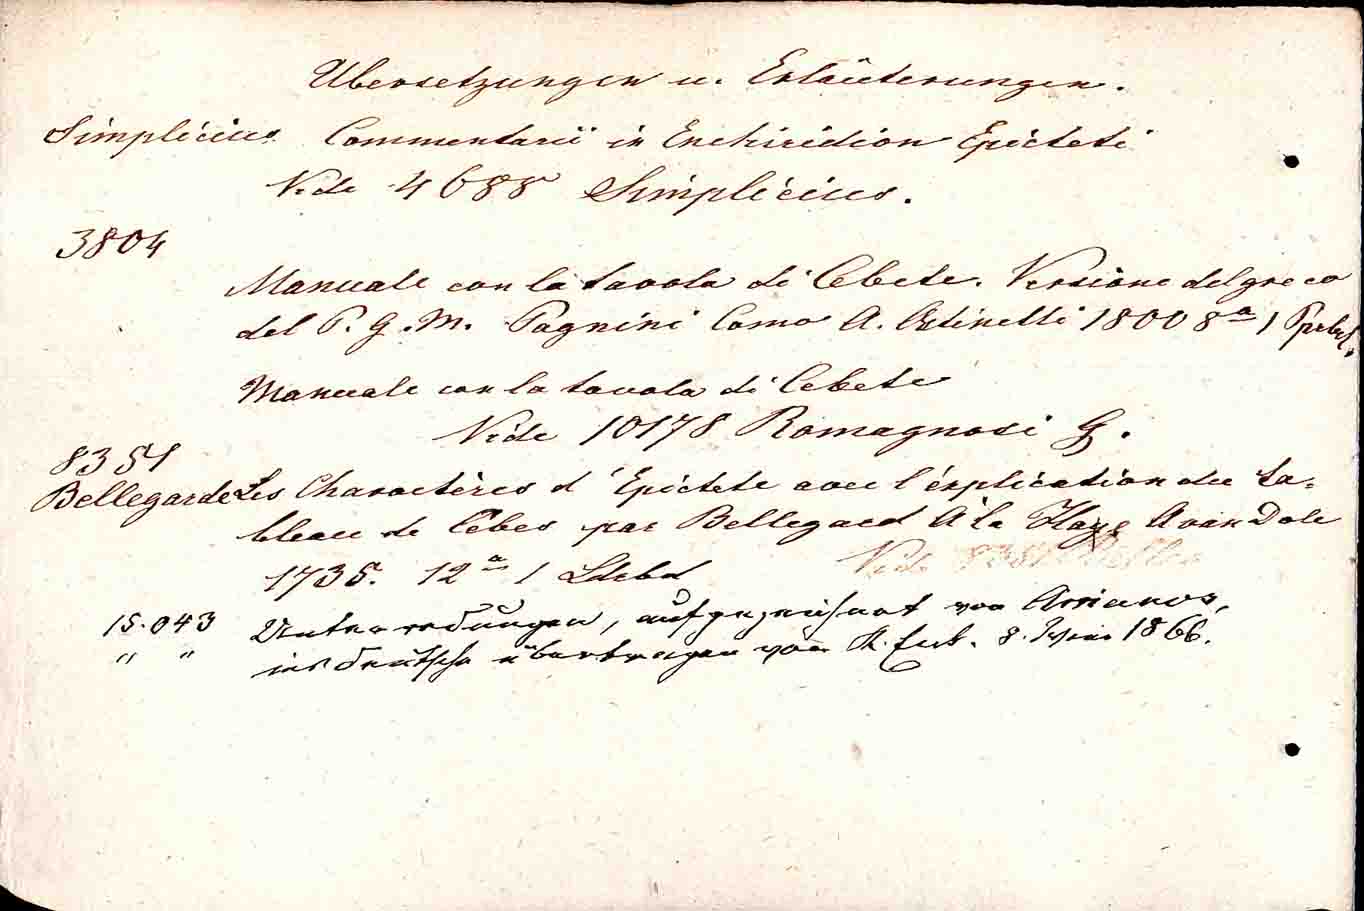 Übersetzungen u. Erläuterungen.
Simplicius Commentarii in Enchiridion Epicteti
Vide 4688 Simplicius.
3804
Manuale con la tavola di Cebete. Versione del greco
del P. G. M. Pagnini Como A. Ostinelli 1800 8ª 1
Manuale con la tavola di Cebete
Vide 10178 Romagnosi G.
8351
Bellegarde Les Charactères d'Epictete avec l'explication du ta=
bleau de Cebes par Bellegard A la Haye A van Dole
1735. 12ª 1 Ldrbd
Vide 8351 Belleg
15.043 Unterredungen, aufgezeichnet von Arrianos,
" " ins Deutsche übertragen von K. Enk. 8. Wien 1866.